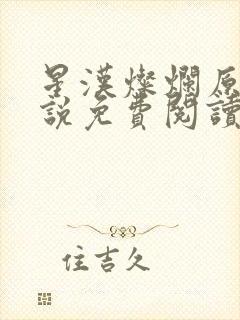 星漢燦爛原
說免費閱讀
住吉久